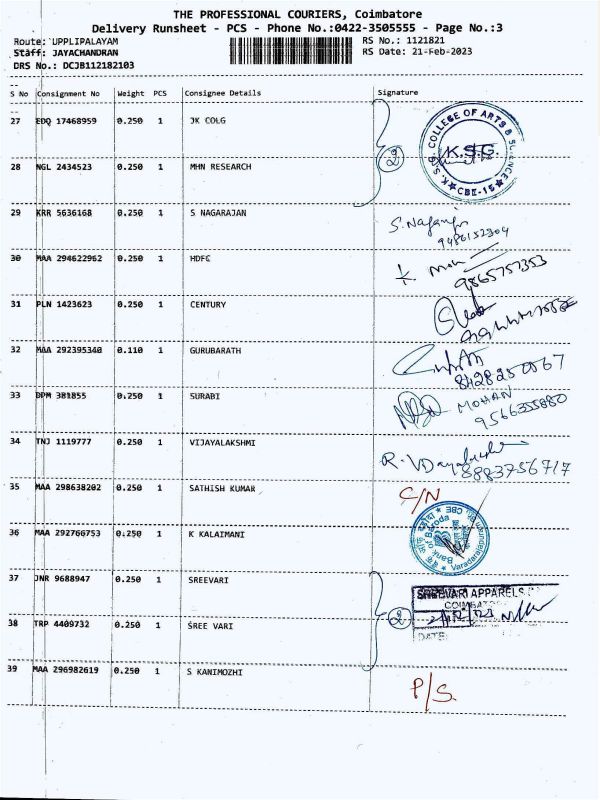 THE PROFESSIONAL COURIERS, Coimbatore
Delivery Runsheet - PCS - Phone No.:0422-3505555 - Page No.:3
Route: UPPLIPALAYAM RS No.: 1121821
Staff: JAYACHANDRAN RS Date: 21-Feb-2023
DRS No.: DCJB112182103
S No Consignment No Weight PCS Consignee Details Signature
27 EDQ 17468959 0.250 1 JK COLG
K.S.G. COLLEGE OF ARTS & SCIENCE
K.S.G.
CBE-15
2
28 NGL 2434523 0.250 1 MHN RESEARCH
29 KRR 5636168 0.250 1 S NAGARAJAN
30 MAA 294622962 0.250 1 HDFC
9865757353
31 PLN 1423623 0.250 1 CENTURY
32 MAA 292395340 0.110 1 GURUBARATH
33 DPM 381855 0.250 1 SURABI MOHAN
9566355880
34 TNJ 1119777 0.250 1 VIJAYALAKSHMI
8883756717
35 MAA 298638202 0.250 1 SATHISH KUMAR C/N
36 MAA 292766753 0.250 1 K KALAIMANI
Bank of Baroda
37 JNR 9688947 0.250 1 SREEVARI
SREEVARI APPARELS
2
DATE:
38 TRP 4409732 0.250 1 SREE VARI
39 MAA 296982619 0.250 1 S KANIMOZHI P/S.